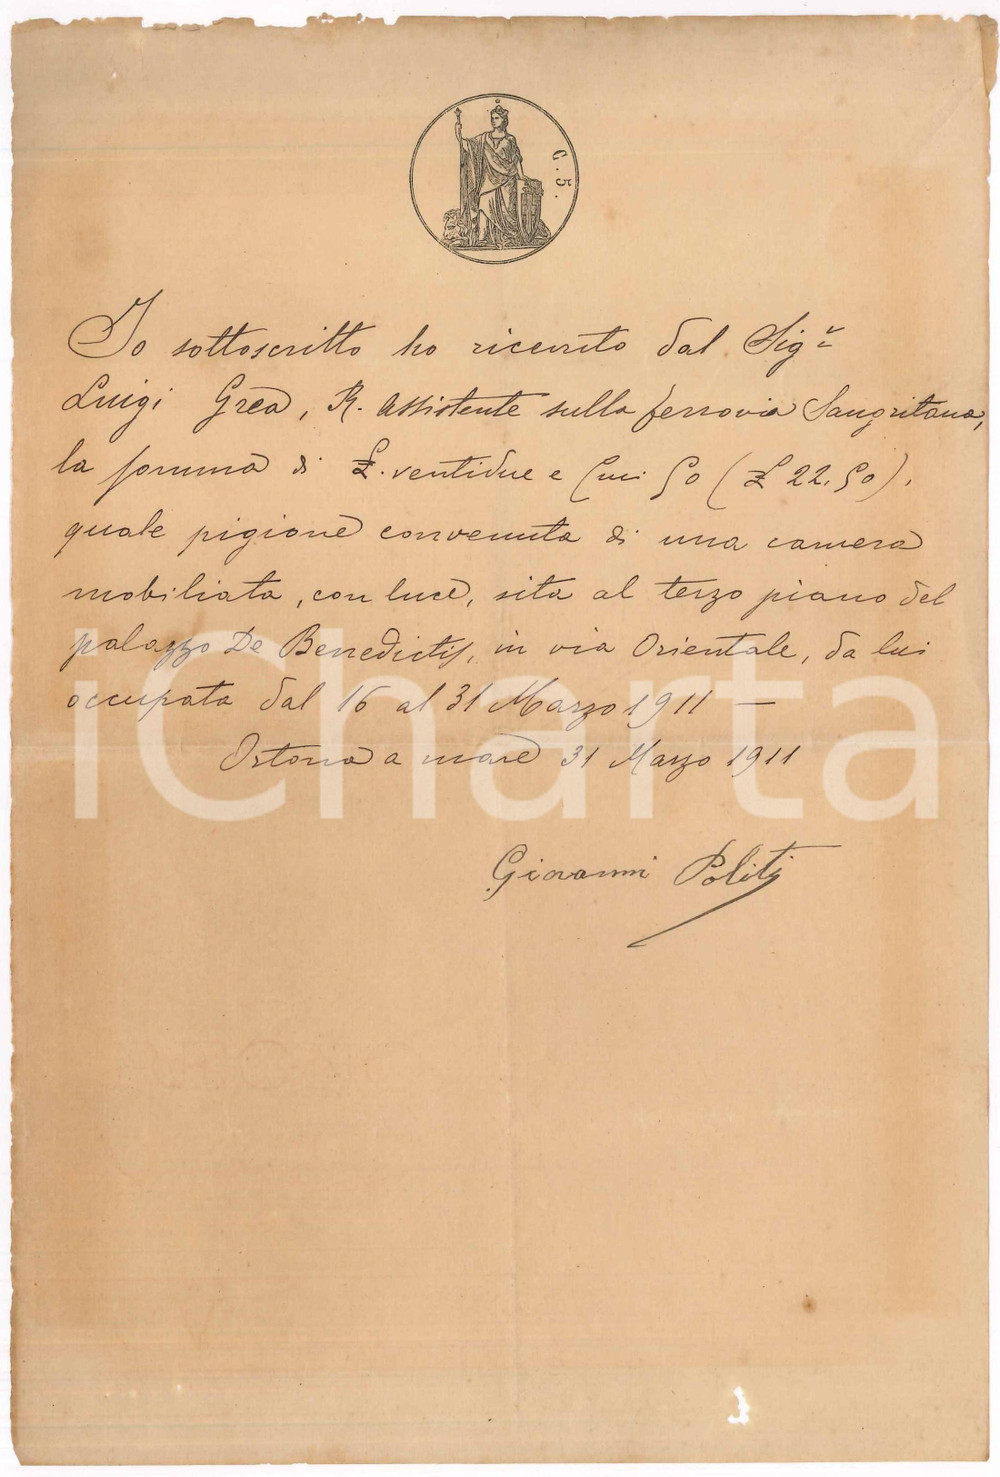 C. 5.
Io sottoscritto ho ricevuto dal Sigr
Luigi Grea, R. Assistente sulla ferrovia Sangritana,
la somma di £. ventidue e Cmi 50 (£ 22.50),
quale pigione convenuta di una camera
mobiliata, con luce, sita al terzo piano del
palazzo De Benedictis, in via Orientale, da lui
occupata dal 16 al 31 Marzo 1911 —
Ortona a mare 31 Marzo 1911
Giovanni Politi
iCharta